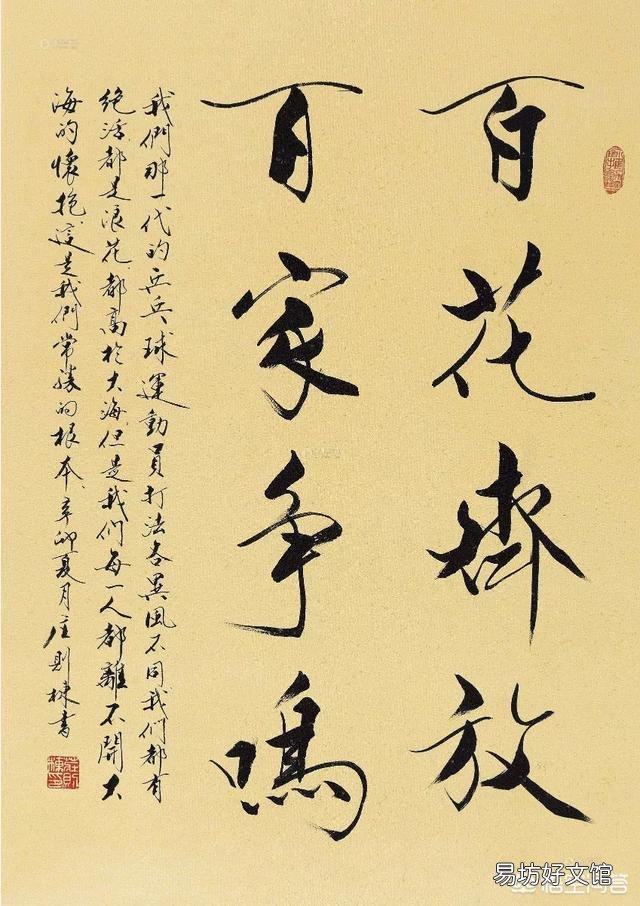 百花齊放
百家争鳴
我們那一代的乒乓球運動員打法各異風不同我们都有
绝活都是浪花都高於大海但是我们每一人都離不開大
海的懷抱這是我們常勝的根本辛卯夏月庄則棟書
易坊好文馆